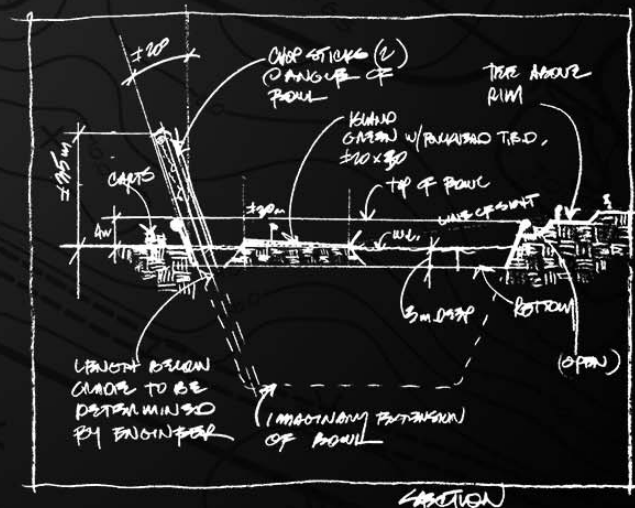 ±20°
CHOP STICKS (2)
@ ANGLE OF
BOWL
TEE ABOVE
RIM
ISLAND
GREEN W/ BULKHEAD T.B.D.
±20 x 30
TOP OF BOWL
LINE OF SIGHT
CARTS
±30m
W.L.
4m
3m DEEP
BOTTOM
(OPEN)
LENGTH BELOW
GRADE TO BE
DETERMINED
BY ENGINEER
IMAGINARY EXTENSION
OF BOWL
SECTION